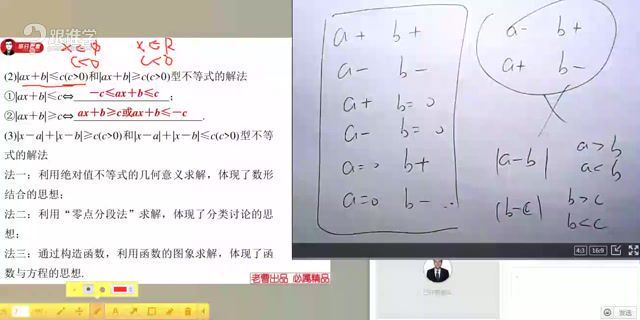 跟谁学
x∈ϕ x∈R
c<0 c<0
(2)|ax+b|≤c(c>0)和|ax+b|≥c(c>0)型不等式的解法
①|ax+b|≤c⇔ －c≤ax+b≤c ;
②|ax+b|≥c⇔ ax+b≥c或ax+b≤－c .
(3)|x－a|+|x－b|≥c(c>0)和|x－a|+|x－b|≤c(c>0)型不等
式的解法
法一：利用绝对值不等式的几何意义求解，体现了数形
结合的思想；
法二：利用“零点分段法”求解，体现了分类讨论的思
想；
法三：通过构造函数，利用函数的图象求解，体现了函
数与方程的思想.
老曹出品 必属精品
a + b +
a - b -
a + b = 0
a - b = 0
a = 0 b +
a = 0 b - ...
a - b +
a + b -
|a-b| a>b
a<b
|b-c| b>c
b<c
4:3 16:9
发送